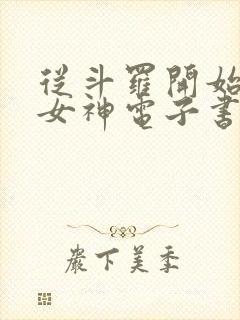 從斗羅開始
女神電子書
嚴下美季